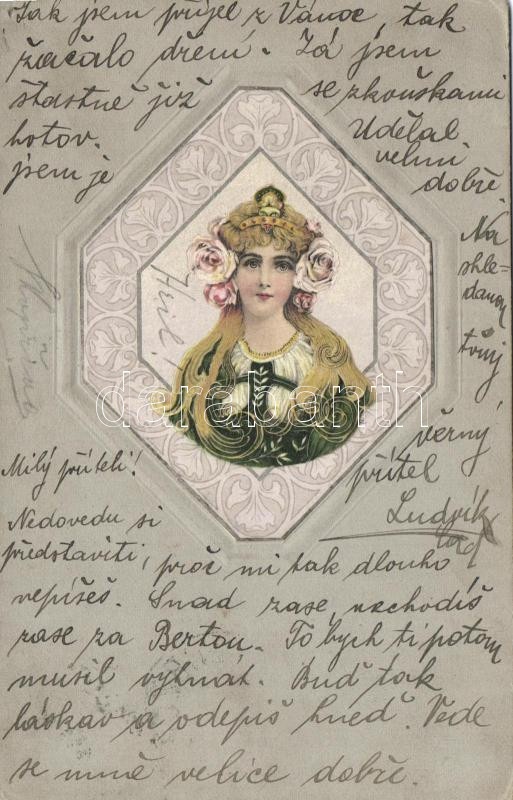 Milý příteli!
Nedovedu si
představiti, proč mi tak dlouho
nepíšeš. Snad zase, nechodíš
zase za Bertou. To bych ti potom
musil vyhnát. Buď tak
láskav a odepiš hned. Vede
se mně velice dobře.
Jak jsem přijel z Vánoc, tak
začalo dření. Já jsem
šťastně již se zkouškami
hotov. Udělal
jsem je velmi
dobře.
Na
shle-
danou
tvůj
věrný
přítel
Ludvík
darabanth